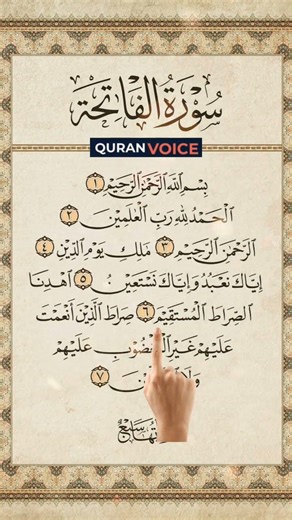 سُوْرَةُ الْفَاتِحَةِ
QURAN VOICE
بِسْمِ اللّٰهِ الرَّحْمٰنِ الرَّحِيْمِ ١
اَلْحَمْدُ لِلّٰهِ رَبِّ الْعٰلَمِيْنَ ٢
الرَّحْمٰنِ الرَّحِيْمِ ٣ مٰلِكِ يَوْمِ الدِّيْنِ ٤
اِيَّاكَ نَعْبُدُ وَاِيَّاكَ نَسْتَعِيْنُ ٥ اِهْدِنَا
الصِّرَاطَ الْمُسْتَقِيْمَ ٦ صِرَاطَ الَّذِيْنَ اَنْعَمْتَ
عَلَيْهِمْ غَيْرِ عَلَيْهِمْ
٧